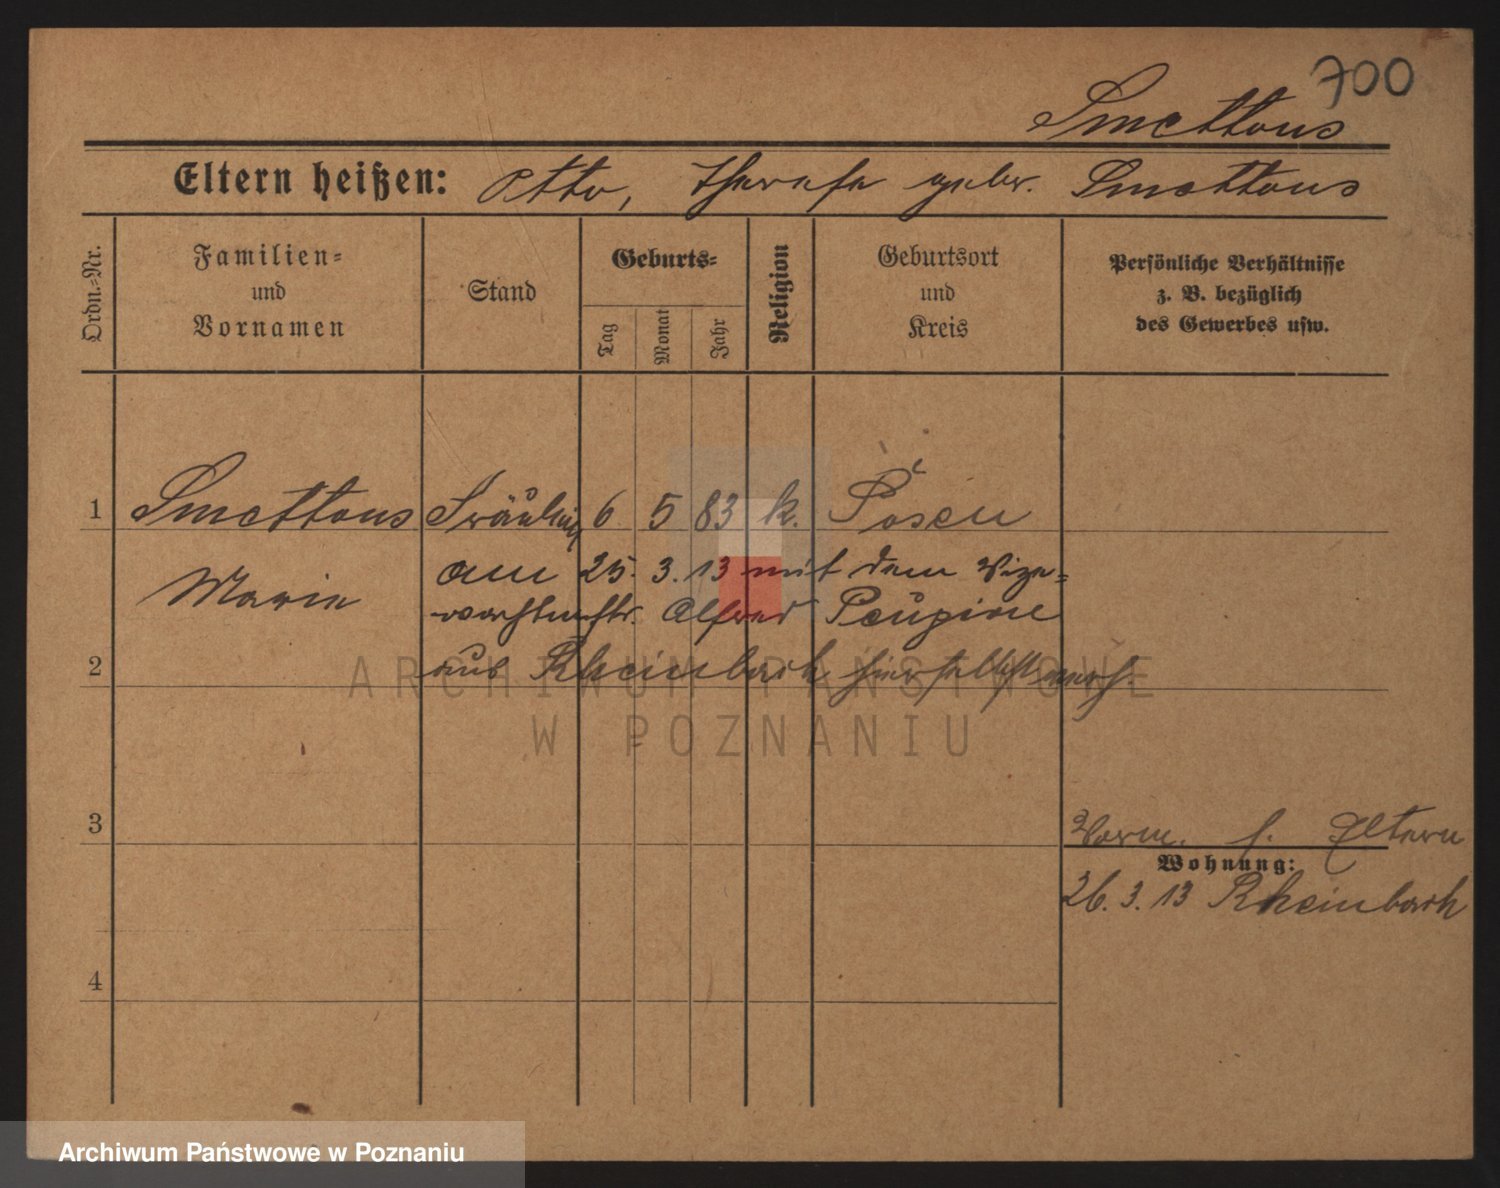 700
Smettons
Eltern heißen: Otto, Therese gebr. Smettons
Ordn.-Nr.
Familien-
und
Vornamen
Stand
Geburts-
Tag
Monat
Jahr
Religion
Geburtsort
und
Kreis
Persönliche Verhältnisse
z. B. bezüglich
des Gewerbes usw.
1 Smettons Fräulein 6 5 83 k. Posen
Marie am 25. 3. 13 mit dem Vize-
wachtmstr. Alfred
2 aus Rheinbach hierselbst verh.
ARCHIWUM PAŃSTWOWE
W POZNANIU
3
Verm. s. Eltern
Wohnung:
26. 3. 13 Rheinbach
4
Archiwum Państwowe w Poznaniu